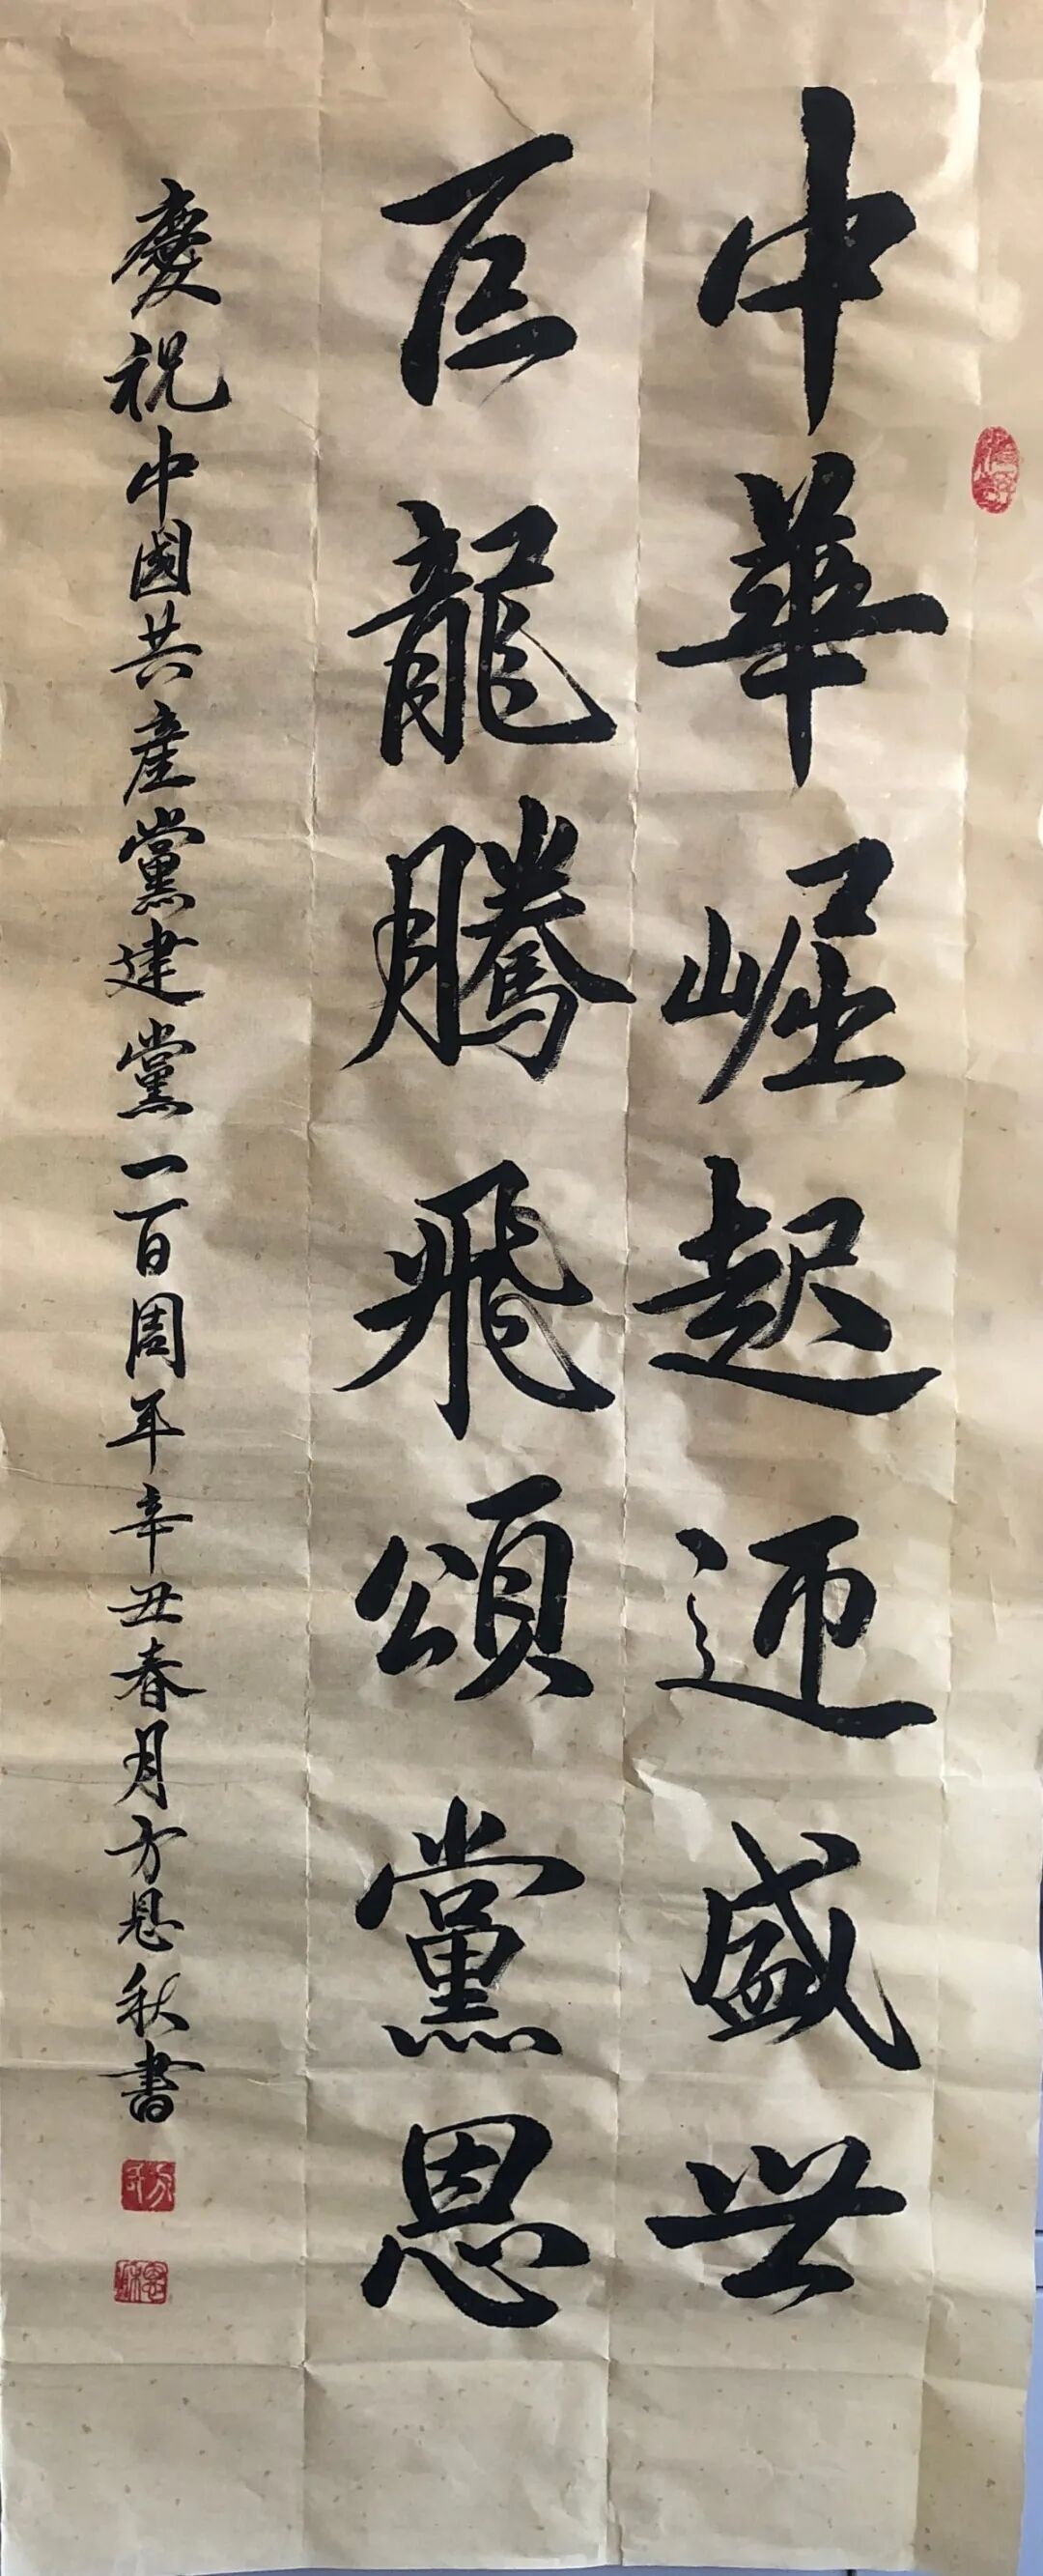 中華崛起迊盛世
巨龍騰飛頌黨恩
慶祝中國共產黨建黨一百周年辛丑春月方恩秋書